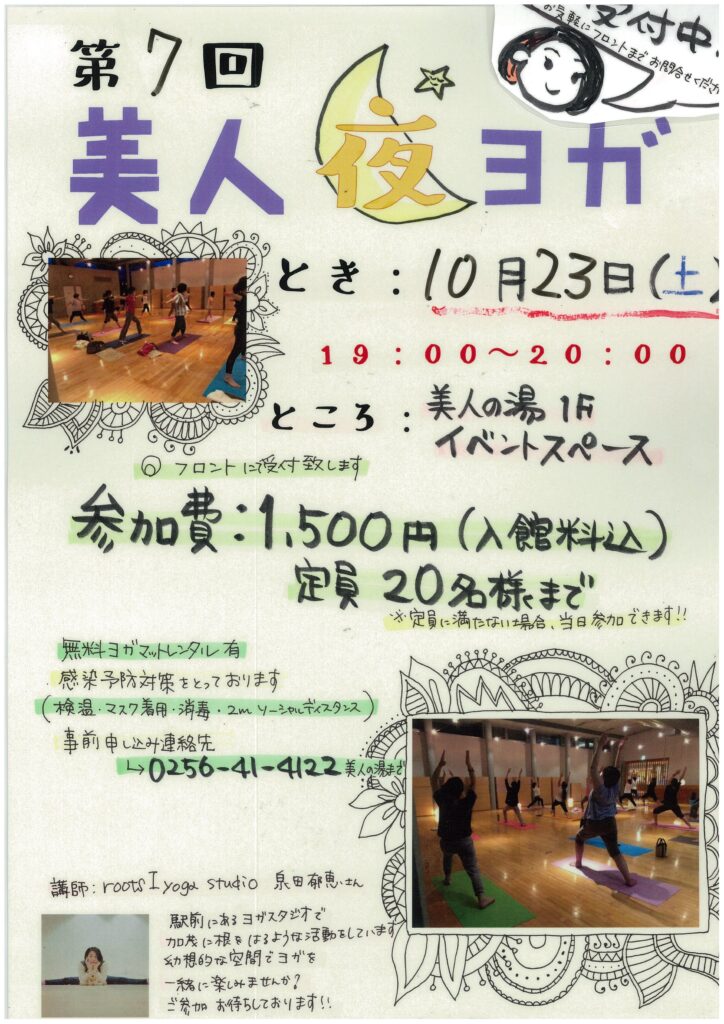 受付中
お気軽にフロントまでお問合せくださ
第7回
美人夜ヨガ
とき：10月23日(土)
19：00～20：00
ところ：美人の湯 1F
イベントスペース
◎ フロントにて受付致します
参加費：1,500円(入館料込)
定員 20名様まで
※定員に満たない場合、当日参加できます!!
無料ヨガマットレンタル有
感染予防対策をとっております
(検温・マスク着用・消毒・2mソーシャルディスタンス)
事前申し込み連絡先
↳0256-41-4122 美人の湯まで
講師：roots I yoga studio 泉田郁恵さん
駅前にあるヨガスタジオで
加茂に根をはるような活動をしています
幻想的な空間でヨガを
一緒に楽しみませんか?
ご参加 お待ちしております!!